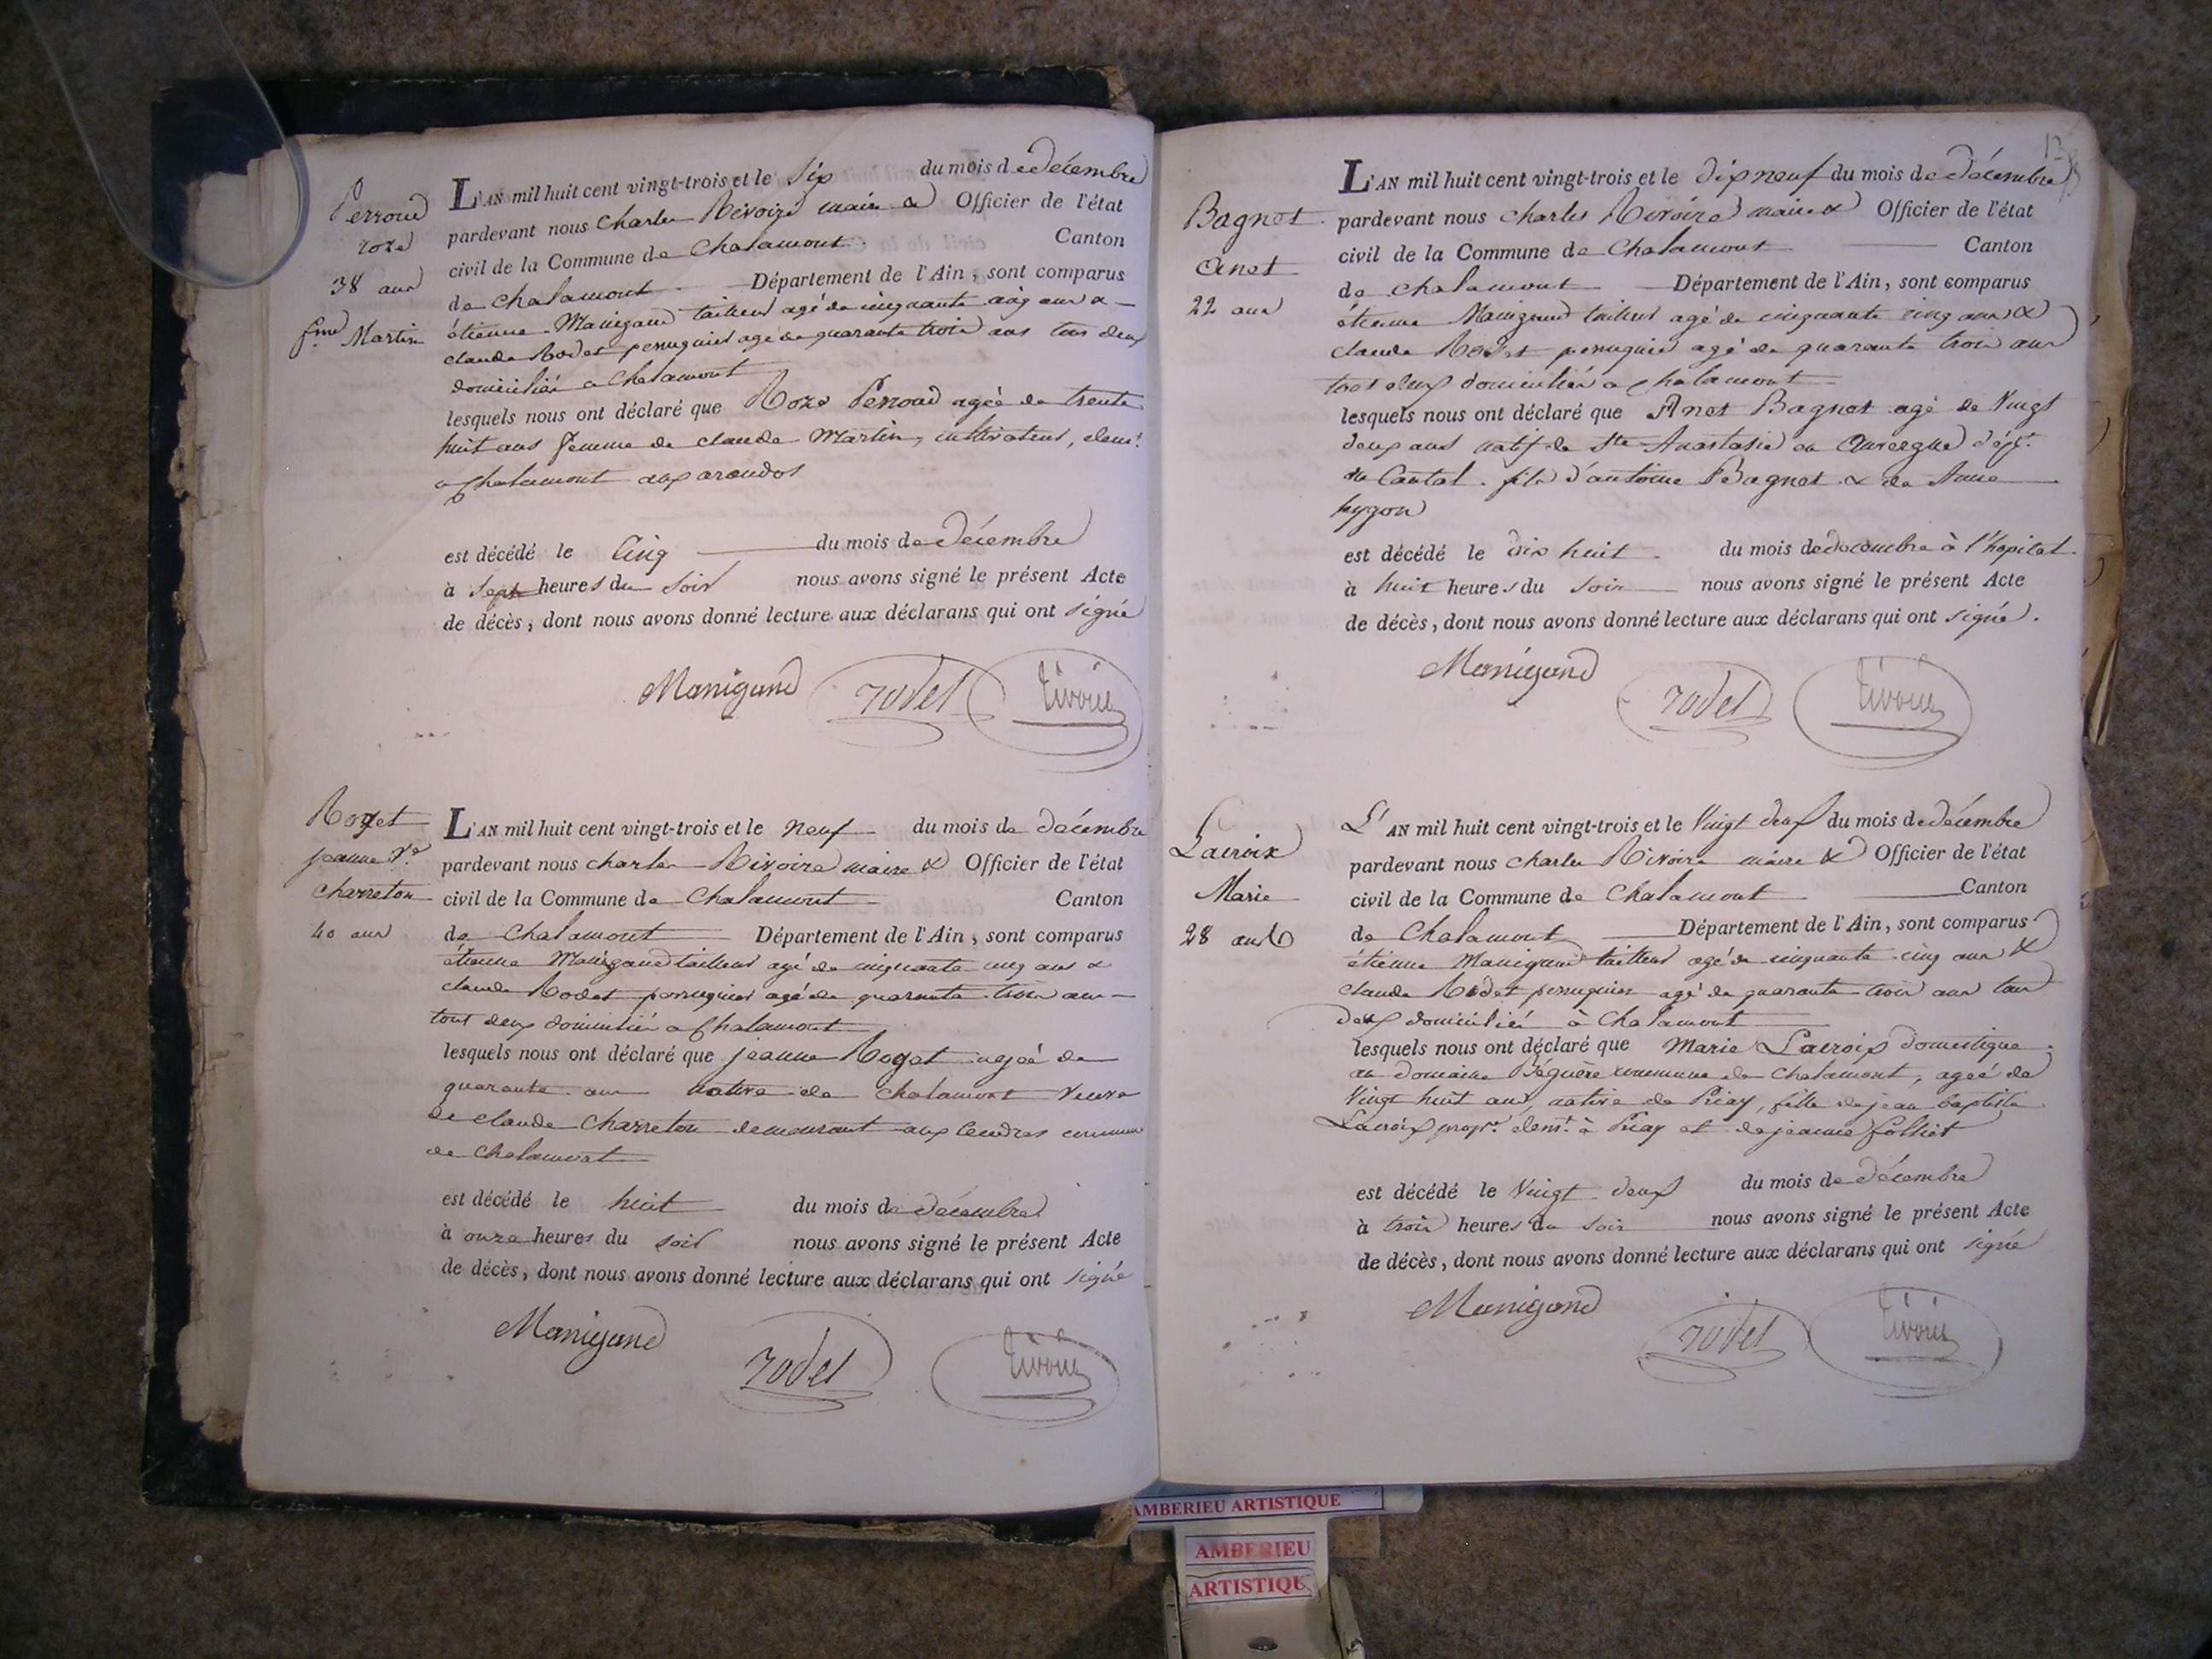 Perroud
roze
38 ans
fme Martin
L'AN mil huit cent vingt-trois et le Six du mois de décembre
pardevant nous Charles Rivoire maire & Officier de l'état
civil de la Commune de Chalamont Canton
de Chalamont Département de l'Ain, sont comparus
étienne Manigand tailleur agé de cinquante cinq ans &
claude Rodet perruquier agé de quarante trois ans tous deux
domiciliés a Chalamont
lesquels nous ont déclaré que Roze Perroud agée de trente
huit ans femme de claude Martin, cultivateur, demt
a Chalamont aux
est décédé le Cinq du mois de décembre
à Sept heures du Soir nous avons signé le présent Acte
de décès, dont nous avons donné lecture aux déclarans qui ont signé
Manigand rodet rivoire
Roget
jeanne Ve
charreton
40 ans
L'AN mil huit cent vingt-trois et le neuf du mois de décembre
pardevant nous charles Rivoire maire & Officier de l'état
civil de la Commune de Chalamont Canton
de Chalamont Département de l'Ain, sont comparus
étienne Manigand tailleur agé de cinquante cinq ans &
claude Rodet perruquier agé de quarante trois ans
tous deux domiciliés a Chalamont
lesquels nous ont déclaré que jeanne Roget agée de
quarante ans native de chalamont veuve
de claude Charreton demeurant aux commune
de Chalamont
est décédé le huit du mois de décembre
à onze heures du soir nous avons signé le présent Acte
de décès, dont nous avons donné lecture aux déclarans qui ont signé
Manigand rodet rivoire
Bagnet
Anet
22 ans
L'AN mil huit cent vingt-trois et le dix neuf du mois de décembre
pardevant nous charles Rivoire maire & Officier de l'état
civil de la Commune de Chalamont Canton
de chalamont Département de l'Ain, sont comparus
étienne Manigand tailleur agé de cinquante cinq ans &
claude Rodet perruquier agé de quarante trois ans
tous deux domiciliés a Chalamont
lesquels nous ont déclaré que Anet Bagnet agé de Vingt
deux ans natif de Ste Anastasie en Auvergne dépt
du Cantal. fils d'antoine Bagnet & de Anne
est décédé le dix huit du mois de décembre à l'hopital.
à huit heures du soir nous avons signé le présent Acte
de décès, dont nous avons donné lecture aux déclarans qui ont signé.
Manigand rodet rivoire
Lacroix
Marie
28 ans
L'AN mil huit cent vingt-trois et le Vingt deux du mois de décembre
pardevant nous charles Rivoire maire & Officier de l'état
civil de la Commune de Chalamont Canton
de Chalamont Département de l'Ain, sont comparus
étienne Manigand tailleur agé de cinquante cinq ans &
claude Rodet perruquier agé de quarante trois ans tous
deux domiciliés à Chalamont
lesquels nous ont déclaré que Marie Lacroix domestique
au domaine commune de Chalamont, agée de
Vingt huit ans, native de Priay, fille de jean baptiste
Lacroix propre demt à Priay et de jeanne folliet
est décédé le Vingt deux du mois de décembre
à trois heures du soir nous avons signé le présent Acte
de décès, dont nous avons donné lecture aux déclarans qui ont signé
Manigand rodet rivoire
AMBERIEU ARTISTIQUE
AMBERIEU
ARTISTIQU